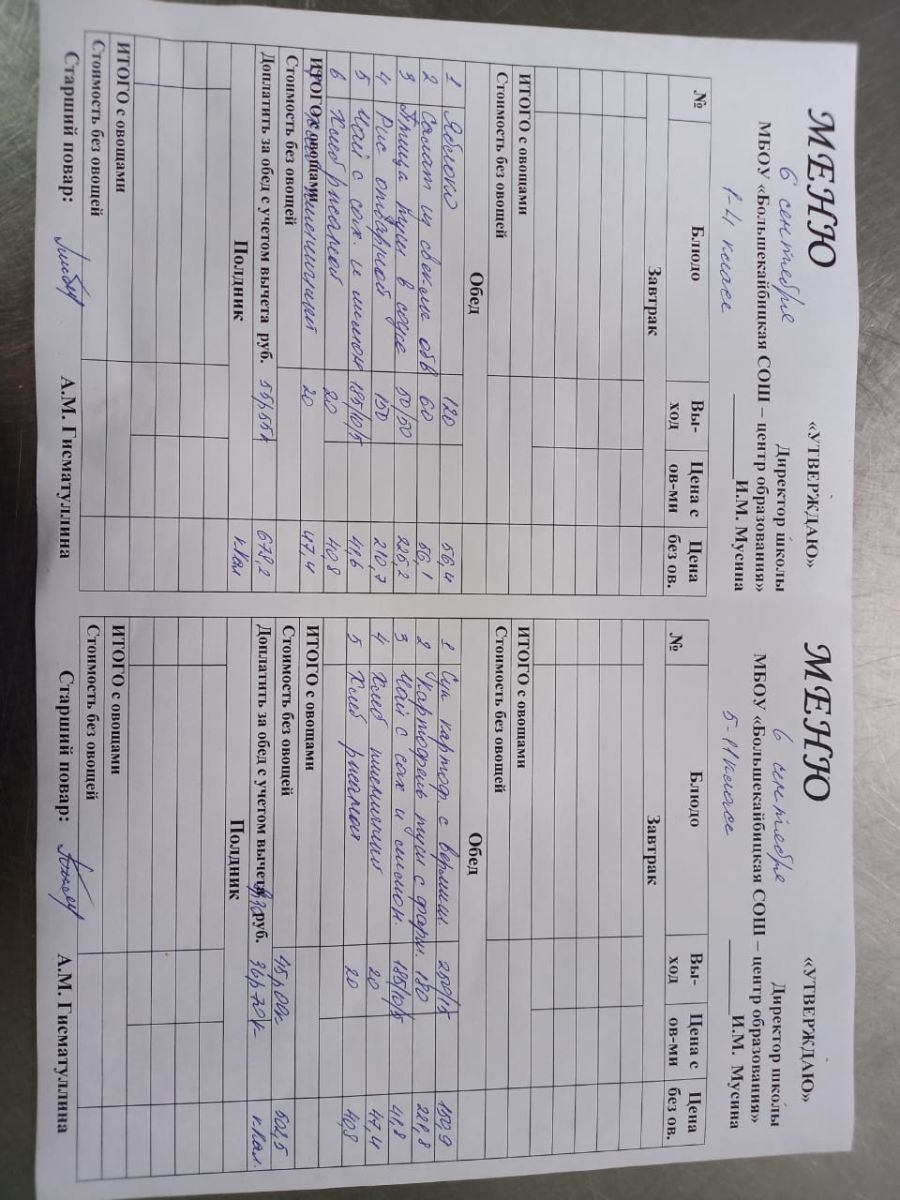 МЕНЮ
«УТВЕРЖДАЮ»
6 сентября
Директор школы
МБОУ «Большекайбицкая СОШ – центр образования»
1-4 классе
И.М. Мусина
№ Блюдо Вы-ход Цена с ов-ми Цена без ов.
Завтрак
ИТОГО с овощами
Стоимость без овощей
Обед
1 Яблоко 120 56,4
2 Салат из свеклы отв 60 56,1
3 Птица туш в соусе 50/50 225,2
4 Рис отварной 150 210,7
5 Чай с сах. и лимон 185/10/5 41,6
6 Хлеб ржаной 20 40,8
ИТОГО с овощами
7 Хлеб пшеничный 20 47,4
Стоимость без овощей
Доплатить за обед с учетом вычета руб. 55р55к 678,2
Полдник ккал
ИТОГО с овощами
Стоимость без овощей
Старший повар: А.М. Гисматуллина
МЕНЮ
«УТВЕРЖДАЮ»
6 сентября
Директор школы
МБОУ «Большекайбицкая СОШ – центр образования»
5-11 классе
И.М. Мусина
№ Блюдо Вы-ход Цена с ов-ми Цена без ов.
Завтрак
ИТОГО с овощами
Стоимость без овощей
Обед
1 Суп картоф. с вермиш. 250/15 150,9
2 Картофель туш с фарш. 180 221,8
3 Чай с сах и лимон. 185/10/5 41,8
4 Хлеб пшеничный 20 47,4
5 Хлеб ржаной 20 40,8
ИТОГО с овощами
Стоимость без овощей 45р00к 502,5
Доплатить за обед с учетом вычета руб. 36р70к ккал.
Полдник
ИТОГО с овощами
Стоимость без овощей
Старший повар: А.М. Гисматуллина